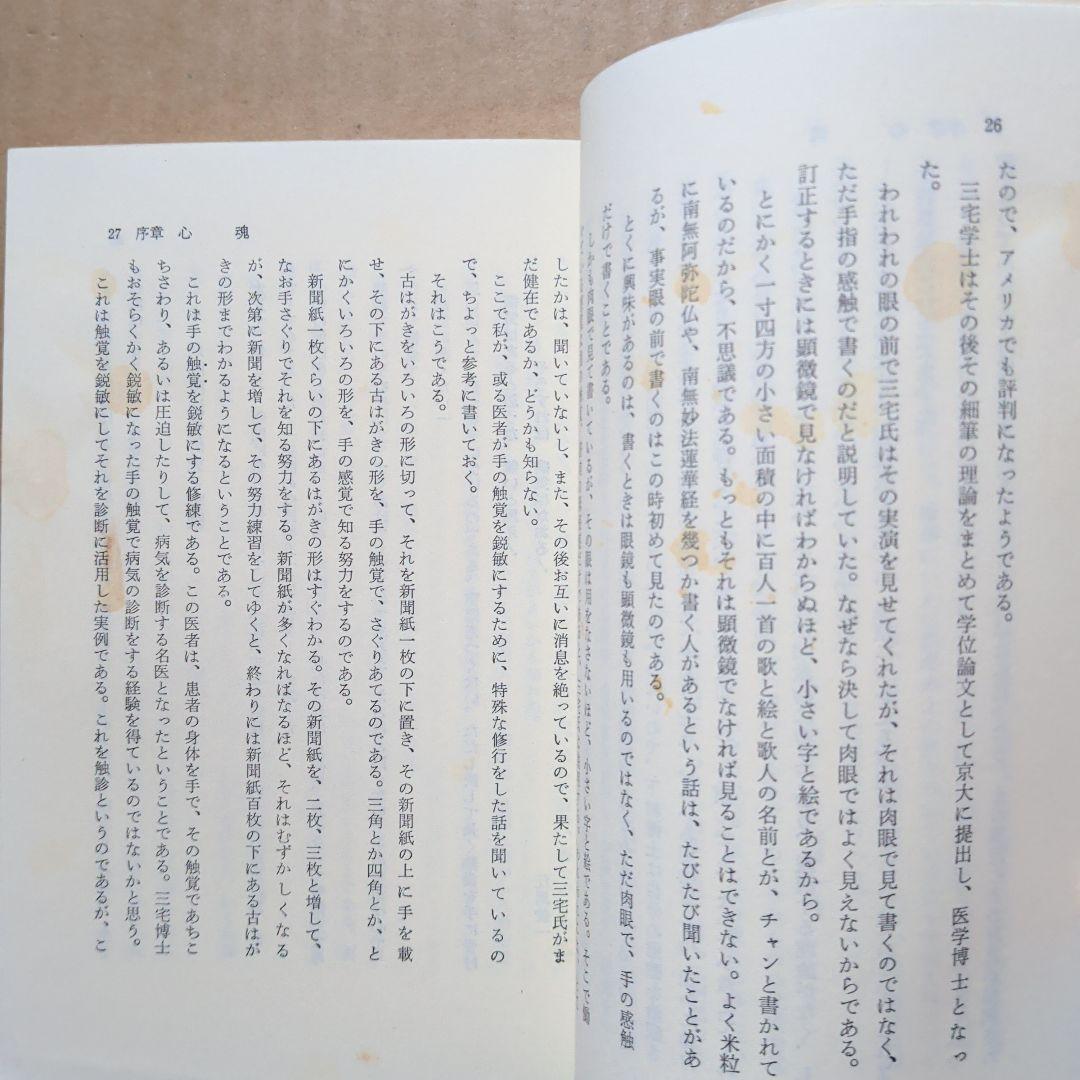 26
たので、アメリカでも評判になったようである。
三宅学士はその後その細筆の理論をまとめて学位論文として京大に提出し、医学博士となっ
た。
われわれの眼の前で三宅氏はその実演を見せてくれたが、それは肉眼で見て書くのではなく、
ただ手指の感触で書くのだと説明していた。なぜなら決して肉眼ではよく見えないからである。
訂正するときには顕微鏡で見なければわからぬほど、小さい字と絵であるから。
とにかく一寸四方の小さい面積の中に百人一首の歌と絵と歌人の名前とが、チャンと書かれて
いるのだから、不思議である。もっともそれは顕微鏡でなければ見ることはできない。よく米粒
に南無阿弥陀仏や、南無妙法蓮華経を幾つか書く人があるという話は、たびたび聞いたことがあ
るが、事実眼の前で書くのはこの時初めて見たのである。
とくに興味があるのは、書くときは眼鏡も顕微鏡も用いるのではなく、ただ肉眼で、手の感触
だけで書くことである。
しかも肉眼で見て書いているが、その眼は用をなさないほど、小さい字と絵である。そこで
27 序章 心 魂
したかは、聞いていないし、また、その後お互いに消息を絶っているので、果たして三宅氏がま
だ健在であるか、どうかも知らない。
ここで私が、或る医者が手の触覚を鋭敏にするために、特殊な修行をした話を聞いているの
で、ちょっと参考に書いておく。
それはこうである。
古はがきをいろいろの形に切って、それを新聞紙一枚の下に置き、その新聞紙の上に手を載
せ、その下にある古はがきの形を、手の触覚で、さぐりあてるのである。三角とか四角とか、と
にかくいろいろの形を、手の感覚で知る努力をするのである。
新聞紙一枚くらいの下にあるはがきの形はすぐわかる。その新聞紙を、二枚、三枚と増して、
なお手さぐりでそれを知る努力をする。新聞紙が多くなればなるほど、それはむずかしくなる
が、次第に新聞を増して、その努力練習をしてゆくと、終わりには新聞紙百枚の下にある古はが
きの形までわかるようになるということである。
これは手の触覚を鋭敏にする修練である。この医者は、患者の身体を手で、その触覚であちこ
ちさわり、あるいは圧迫したりして、病気を診断する名医となったということである。三宅博士
もおそらくかく鋭敏になった手の触覚で病気の診断をする経験を得ているのではないかと思う。
これは触覚を鋭敏にしてそれを診断に活用した実例である。これを触診というのであるが、こ